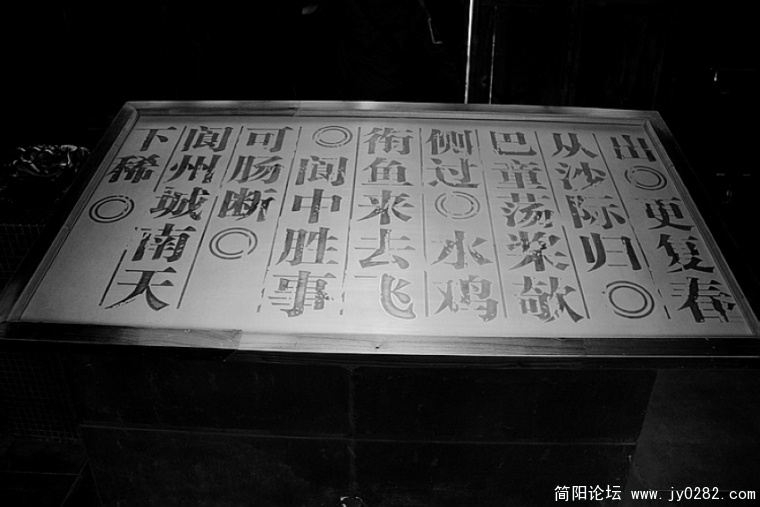 出◎更复春
从沙际归◎
巴童荡桨欹
侧过◎水鸡
衔鱼来去飞
◎阆中胜事
可肠断◎
阆州城南天
下稀◎
简阳论坛 www.jy0282.com